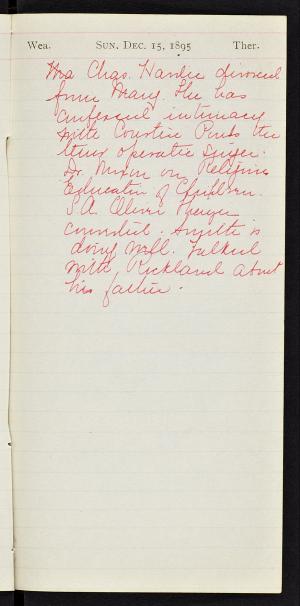 Wea. SUN. DEC. 15, 1895 Ther.
Mrs Chas. Hardee divorced
from Mary. She has
confessed intimacy
with Courtice Pounds the
tenor operatic singer.
Dr. Nixon on Religious
Education of Children.
S. A. Oliver Burger
connected. Smythe is
doing well. Talked
with Rockland about
his father.